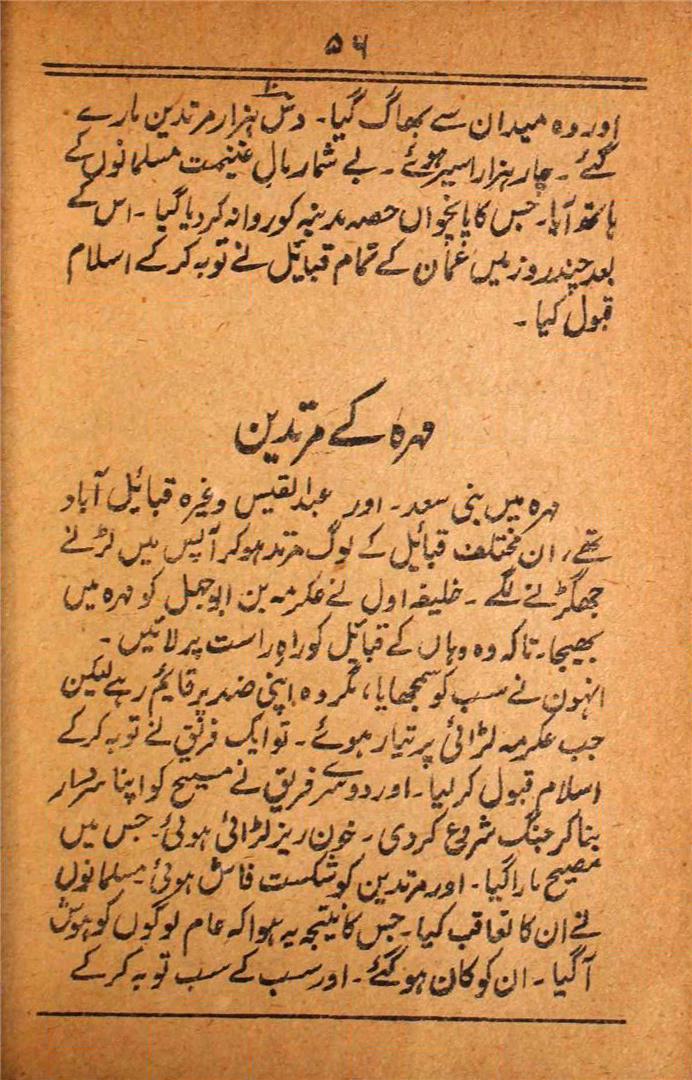 ۵۶
اور وہ میدان سے بھاگ گیا۔ دس ۱۰ ہزار مرتدین مارے
گئے۔ چار ہزار اسیر ہوئے۔ بے شمار مالِ غنیمت مسلمانوں کے
ہاتھ آیا۔ جس کا پانچواں حصہ مدینہ کو روانہ کر دیا گیا۔ اس کے
بعد چند روز میں عُمان کے تمام قبائل نے توبہ کر کے اسلام
قبول کیا۔
مہرہ کے مرتدین
مہرہ میں بنی سعد۔ اور عبدالقیس وغیرہ قبائیل آباد
تھے، ان مختلف قبائیل کے لوگ مرتد ہو کر آپس میں لڑنے
جھگڑنے لگے۔ خلیفہ اول نے عکرمہ بن ابوجہل کو مہرہ میں
بھیجا۔ تاکہ وہ وہاں کے قبائل کو راہِ راست پر لائیں۔
انہوں نے سب کو سمجھایا، مگر وہ اپنی ضد پر قائیم رہے لیکن
جب عکرمہ لڑائی پر تیار ہوئے۔ تو ایک فریق نے توبہ کر کے
اسلام قبول کر لیا۔ اور دوسرے فریق نے مسیح کو اپنا سردار
بنا کر جنگ شروع کر دی۔ خون ریز لڑائی ہوئی۔ جس میں
مصیح مارا گیا۔ اور مرتدین کو شکست فاش ہوئی۔ مسلمانوں
نے ان کا تعاقب کیا۔ جس کا نتیجہ یہ ہوا کہ عام لوگوں کو ہوش
آ گیا۔ ان کو کان ہو گئے۔ اور سب کے سب توبہ کر کے